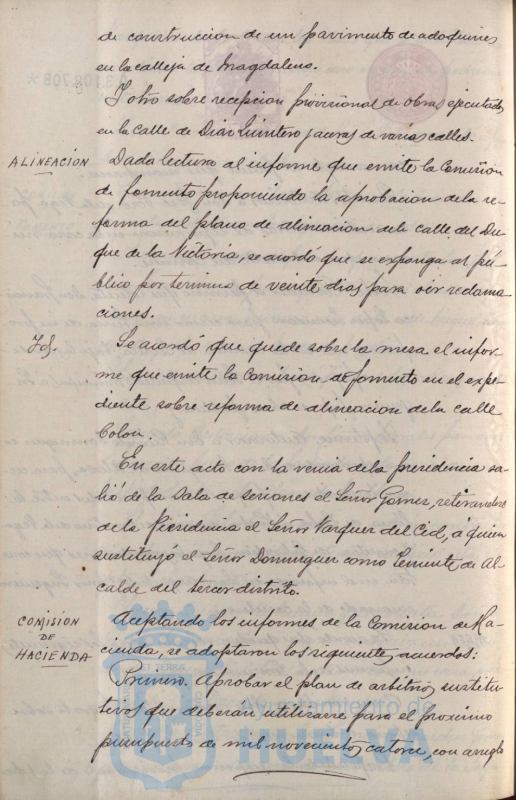 de construccion de un pavimento de adoquines
en la calleja de Magdalena.
Y otro sobre recepcion provisional de obras ejecutadas
en la calle de Diaz Quintero y aceras de varias calles.
ALINEACIÓN
Dada lectura al informe que emite la Comision
de fomento proponiendo la aprobacion de la re-
forma del plano de alineacion de la calle del Du-
que de la Victoria, se acordó que se exponga al pú-
blico por termino de veinte dias para oir reclama-
ciones.
Id.
Se acordó que quede sobre la mesa el infor-
me que emite la Comision de fomento en el expe-
diente sobre reforma de alineacion de la calle
Colon.
En este acto con la venia de la presidencia sa-
lió de la sala de sesiones el Señor Gomez, retirandose
de la Presidencia el Señor Vazquez del Cid, á quien
sustituyó el Señor Dominguez como Teniente de Al-
calde del tercer distrito.
COMISION
DE
HACIENDA
Aceptando los informes de la Comision de Ha-
cienda, se adoptaron los siguientes acuerdos:
Primero. Aprobar el plan de arbitrios sustitu-
tivos que deberán utilizarse para el proximo
presupuesto de mil novecientos catorce, con arreglo
Ayuntamiento de
HUELVA